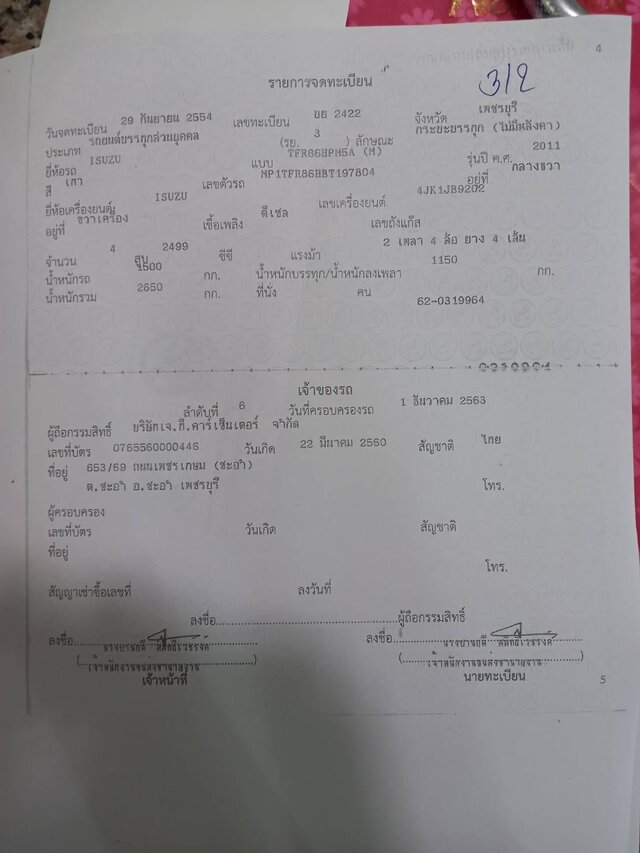 4
รายการจดทะเบียน
312
วันจดทะเบียน 29 กันยายน 2554 เลขทะเบียน บย 2422 จังหวัด เพชรบุรี
ประเภท รถยนต์บรรทุกส่วนบุคคล (รย. 3 ) ลักษณะ กระบะบรรทุก (ไม่มีหลังคา)
ยี่ห้อรถ ISUZU แบบ TFR86HPM5A (M) รุ่นปี ค.ศ. 2011
สี เทา เลขตัวรถ MP1TFR86HBT197804 อยู่ที่ กลางขวา
ยี่ห้อเครื่องยนต์ ISUZU เลขเครื่องยนต์ 4JK1JB9202
อยู่ที่ ขวาเครื่อง เชื้อเพลิง ดีเซล เลขถังแก๊ส
จำนวน 4 สูบ 2499 ซีซี แรงม้า 2 เพลา 4 ล้อ ยาง 4 เส้น
น้ำหนักรถ 1500 กก. น้ำหนักบรรทุก/น้ำหนักลงเพลา 1150 กก.
น้ำหนักรวม 2650 กก. ที่นั่ง คน
62-0319964
เจ้าของรถ
ลำดับที่ 6 วันที่ครอบครองรถ 1 ธันวาคม 2563
ผู้ถือกรรมสิทธิ์ บริษัทเจ.ที.คาร์เซ็นเตอร์ จำกัด
เลขที่บัตร 0765560000446 วันเกิด 22 มีนาคม 2560 สัญชาติ ไทย
ที่อยู่ 653/69 ถนนเพชรเกษม (ชะอำ)
ต.ชะอำ อ.ชะอำ เพชรบุรี โทร.
ผู้ครอบครอง
เลขที่บัตร วันเกิด สัญชาติ
ที่อยู่
โทร.
สัญญาเช่าซื้อเลขที่ ลงวันที่
ลงชื่อ ผู้ถือกรรมสิทธิ์
ลงชื่อ ลงชื่อ
(เจ้าพนักงานขนส่งชำนาญงาน) (เจ้าพนักงานขนส่งชำนาญงาน)
เจ้าหน้าที่ นายทะเบียน
5